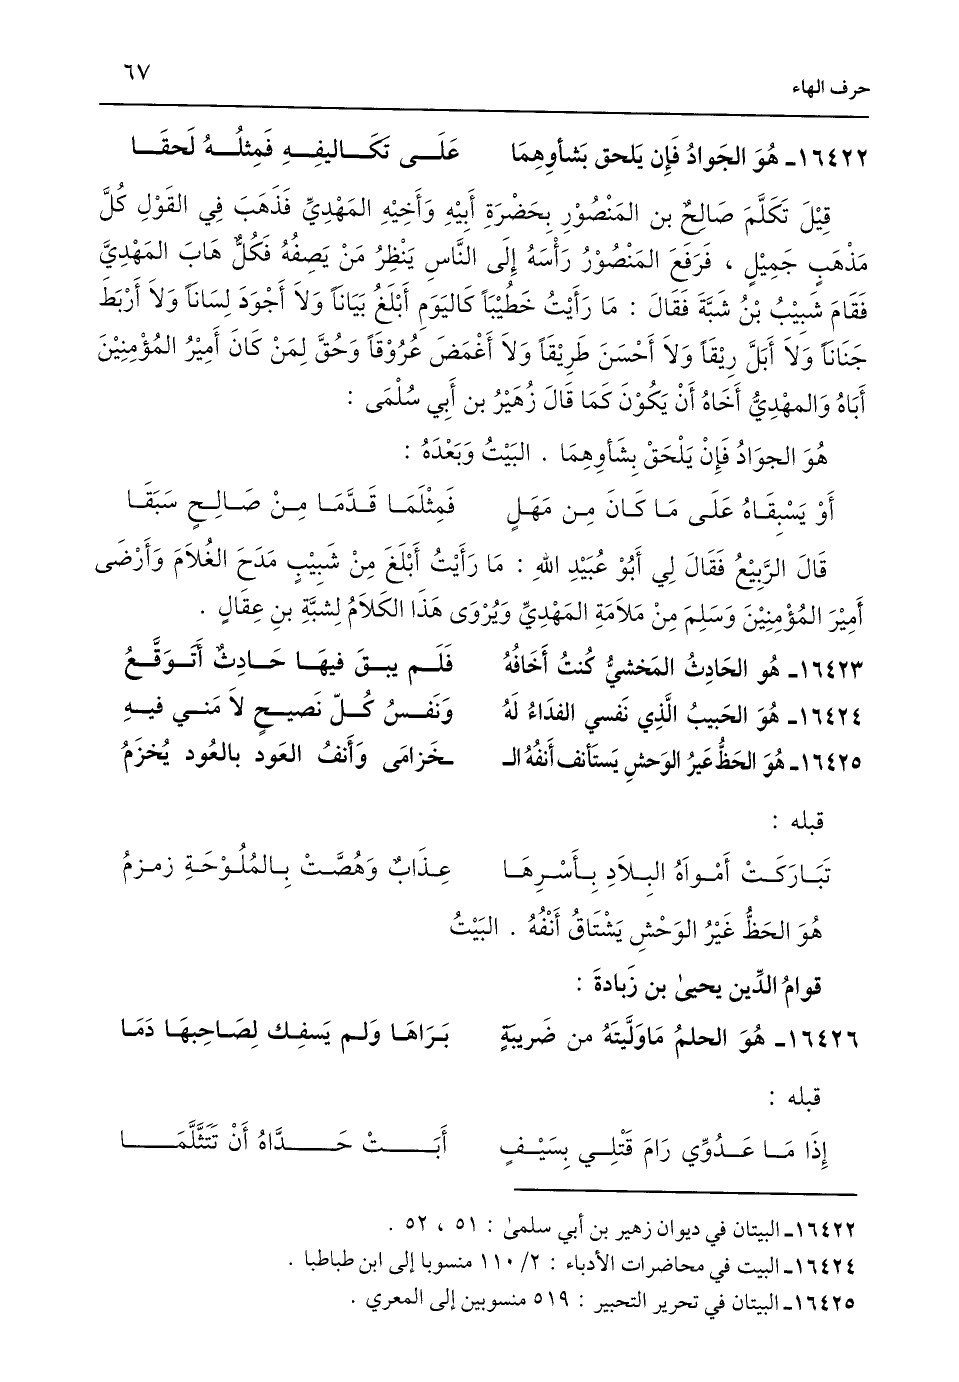 ٦٧
حرف الهاء
١٦٤٢٢ـ هُوَ الجَوادُ فَإِن يَلحق بَشأوِهِمَا عَلَـــى تَكَـــاليفِـــهِ فَمِثلُـــهُ لَحقَـــا
قِيْلَ تَكَلَّمَ صَالِحُ بن المَنْصُوْرِ بِحَضْرَةِ أَبِيْهِ وَأَخِيْهِ المَهْدِيِّ فَذَهَبَ فِي القَوْلِ كُلَّ
مَذْهَبٍ جَمِيْلٍ ، فَرَفَعَ المَنْصُوْرُ رَأْسَهُ إِلَى النَّاسِ يَنْظِرُ مَنْ يَصِفُهُ فَكُلٌّ هَابَ المَهْدِيَّ
فَقَامَ شَبِيْبُ بْنُ شَبَّةَ فَقَالَ : مَا رَأَيْتُ خَطْيْبَاً كَاليَومِ أَبْلَغُ بَيَانَاً وَلاَ أَجْوَدَ لِسَانَاً وَلاَ أَرْبَطَ
جَنَانَاً وَلاَ أَبَلَّ رِيْقَاً وَلاَ أَحْسَنَ طَرِيْقَاً وَلاَ أَغْمَضَ عُرُوْقَاً وَحُقَّ لِمَنْ كَانَ أَمِيْرُ المُؤْمِنِيْنَ
أَبَاهُ وَالمهْدِيُّ أَخَاهُ أَنْ يَكُوْنَ كَمَا قَالَ زُهَيْرُ بن أَبي سُلْمَى :
هُوَ الجوَادُ فَإِنْ يَلْحَقْ بِشَأوِهِمَا . البَيْتُ وَبَعْدَهُ :
أَوْ يَسْبِقَاهُ عَلَـى مَـا كَـانَ مِـن مَهَـلٍ فَمِثْلَمَـا قَـدَّمَـا مِـنْ صَـالِـحٍ سَبَقَـا
قَالَ الرَّبِيْعُ فَقَالَ لِي أَبُوْ عُبَيْدِ اللهِ : مَا رَأَيْتُ أَبْلَغَ مِنْ شَبِيْبٍ مَدَحَ الغُلاَمَ وَأَرْضَى
أَمِيْرَ المُؤْمِنِيْنَ وَسَلِمَ مِنْ مَلاَمَةِ المَهْدِيِّ وَيُرْوَى هَذَا الكَلاَمُ لِشبَّةِ بنِ عِقَالٍ .
١٦٤٢٣ـ هُو الحَادِثُ المَخشيُّ كُنتُ أَخَافُهُ فَلَـــم يبـــقَ فيهَـــا حَـــادِثٌ أَتَـــوَقَّـــعُ
١٦٤٢٤ـ هُوَ الحَبيبُ الَّذِي نَفسي الفدَاءُ لَهُ وَنَفـــسُ كُـــلّ نَصيـــحٍ لاَ مَنـــي فيـــهِ
١٦٤٢٥ـ هُوَ الحَظُّ عَيرُ الوَحشِ يَستَأنف أَنفُهُ الـ ـخَزامَى وَأَنفُ العَود بالعُود يُخزَمُ
قبله :
تَبَـارَكَـتْ أَمْـوَاهُ البِـلاَدِ بِـأَسْـرِهَـا عِـذَابٌ وَهُصَّـتْ بِـالمُلُـوْحَـةِ زمـزمُ
هُوَ الحَظُّ عَيْرُ الوَحْشِ يَشْتَاقُ أَنْفُهُ . البَيْتُ
قوامُ الدِّين يحيىٰ بن زَبادةَ :
١٦٤٢٦ـ هُوَ الحلمُ مَاوَلَّيتَهُ من ضَريبَةٍ بَـرَاهَـا وَلـم يَسفِـك لصَـاحِبهَـا دَمَـا
قبله :
إِذَا مَـا عَـدُوِّي رَامَ قَتْلِـي بِسَيْـفٍ أَبَـــتْ حَـــدَّاهُ أَنْ تَتَثَّلَّمَـــا
١٦٤٢٢ـ البيتان في ديوان زهير بن أبي سلمىٰ : ٥١ ، ٥٢ .
١٦٤٢٤ـ البيت في محاضرات الأدباء : ٢/ ١١٠ منسوبا إلى ابن طباطبا .
١٦٤٢٥ـ البيتان في تحرير التحبير : ٥١٩ منسوبين إلى المعري .